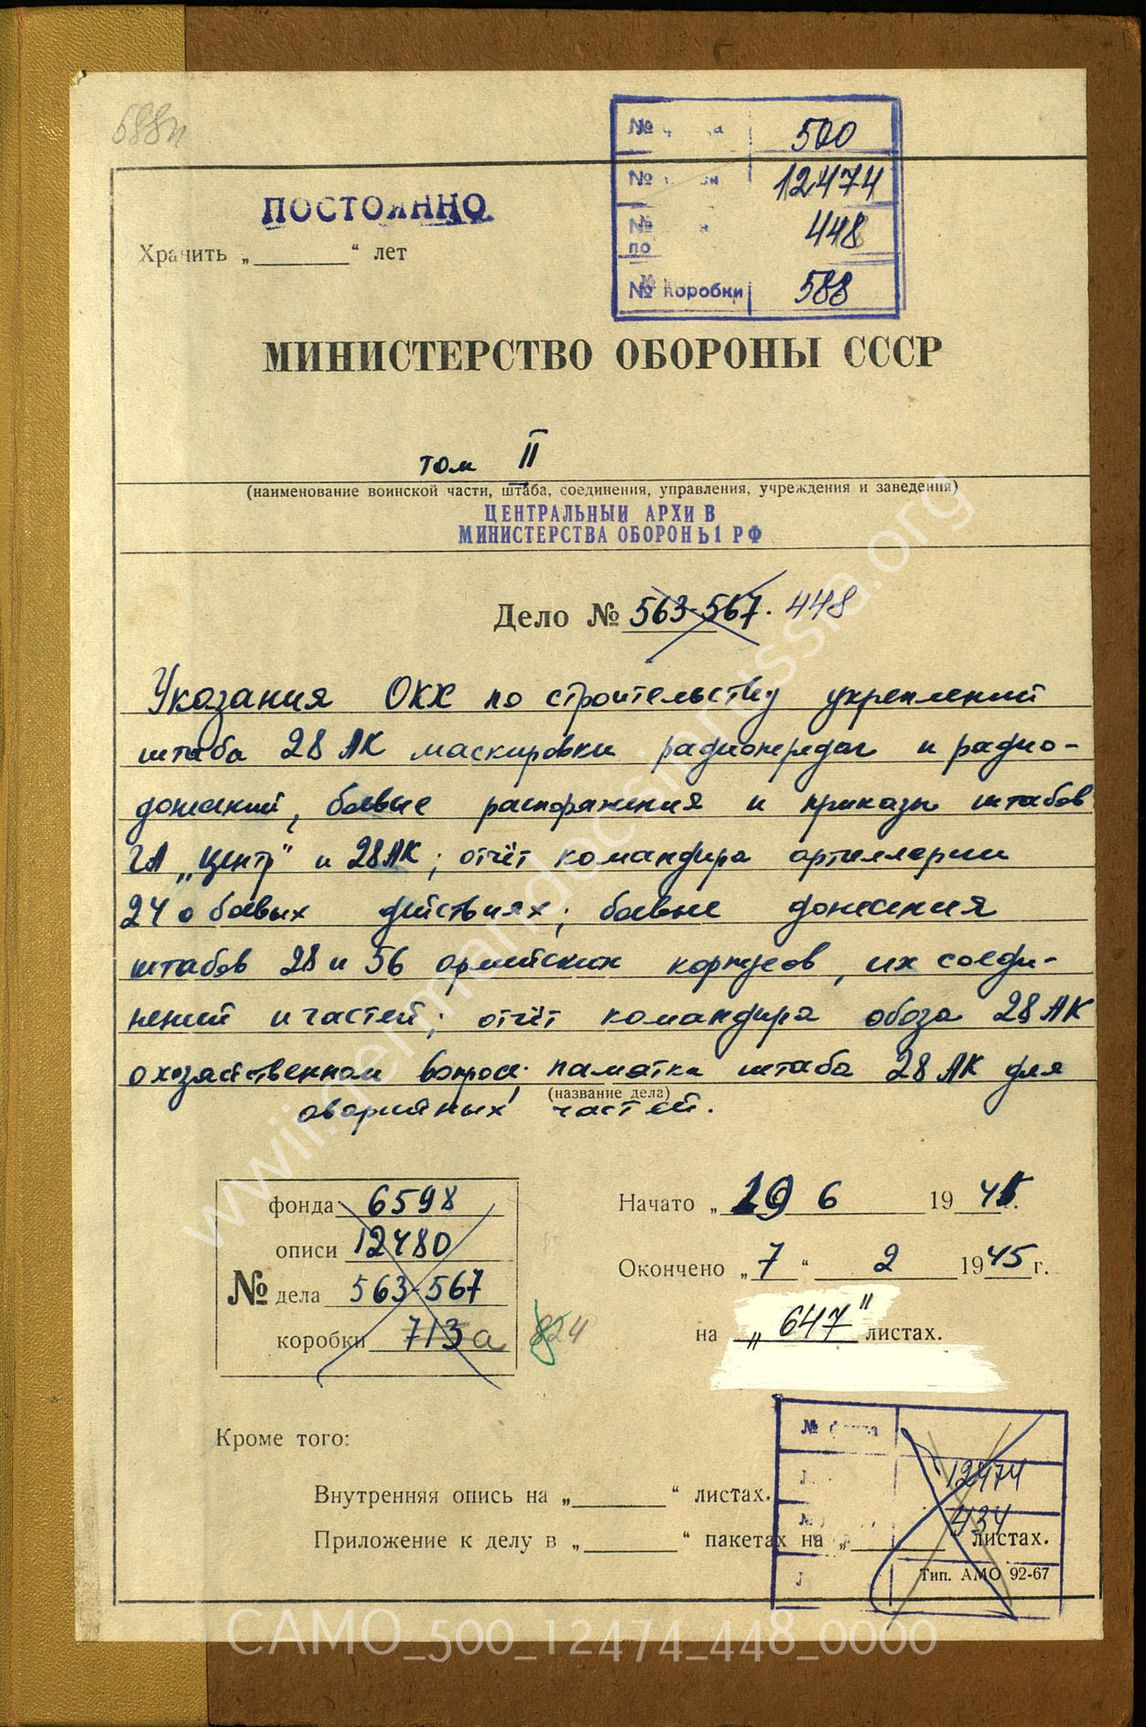 588п
№ 500
№ 12474
№ по 448
№ коробки 588
ПОСТОЯННО
Хранить „ “ лет
МИНИСТЕРСТВО ОБОРОНЫ СССР
том II
(наименование воинской части, штаба, соединения, управления, учреждения и заведения)
ЦЕНТРАЛЬНЫЙ АРХИВ
МИНИСТЕРСТВА ОБОРОНЫ РФ
Дело № 563-567. 448
Указания ОКХ по строительству укреплений
штаба 28 АК маскировки радиопередач и радио-
донесений, боевые распоряжения и приказы штабов
ГА „Центр" и 28 АК; отчёт командира артиллерии
24 о боевых действиях; боевые донесения
штабов 28 и 56 армейских корпусов, их соеди-
нений и частей; отчёт командира обоза 28 АК
о хозяйственном вопросе; памятка штаба 28 АК для
(название дела)
аварийных частей.
фонда 6598
описи 12480
№ дела 563-567
коробки 713а
824
Начато „19 6 19 41 г.
Окончено „7 “ 2 1945 г.
на „647" листах.
Кроме того:
Внутренняя опись на „ “ листах.
Приложение к делу в „ “ пакетах на „ “ листах.
№ фонда
12474
434
Тип. АМО 92-67
wwii.germandocsinrussia.org
CAMO_500_12474_448_0000